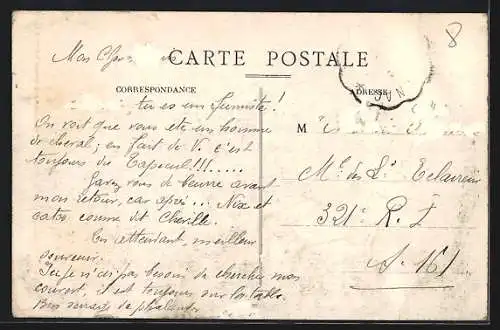 8
Mon Ch
CARTE POSTALE
CORRESPONDANCE
ADRESSE
tu es un fumiste!
On voit que vous etc un homme
de cheval; en fait de V. c'est
toujours du Tapecul!!!.....
Garez vous de beurre avant
mon retour, car après... Nix et
catos comme dit Cherille.
En attendant, meilleur
souvenir.
n'ai pas besoin de chercher mon
couvert, il est toujours sur la table.
Bon
M
Mc des Ls Eclaireur
321e R. I
S. 161